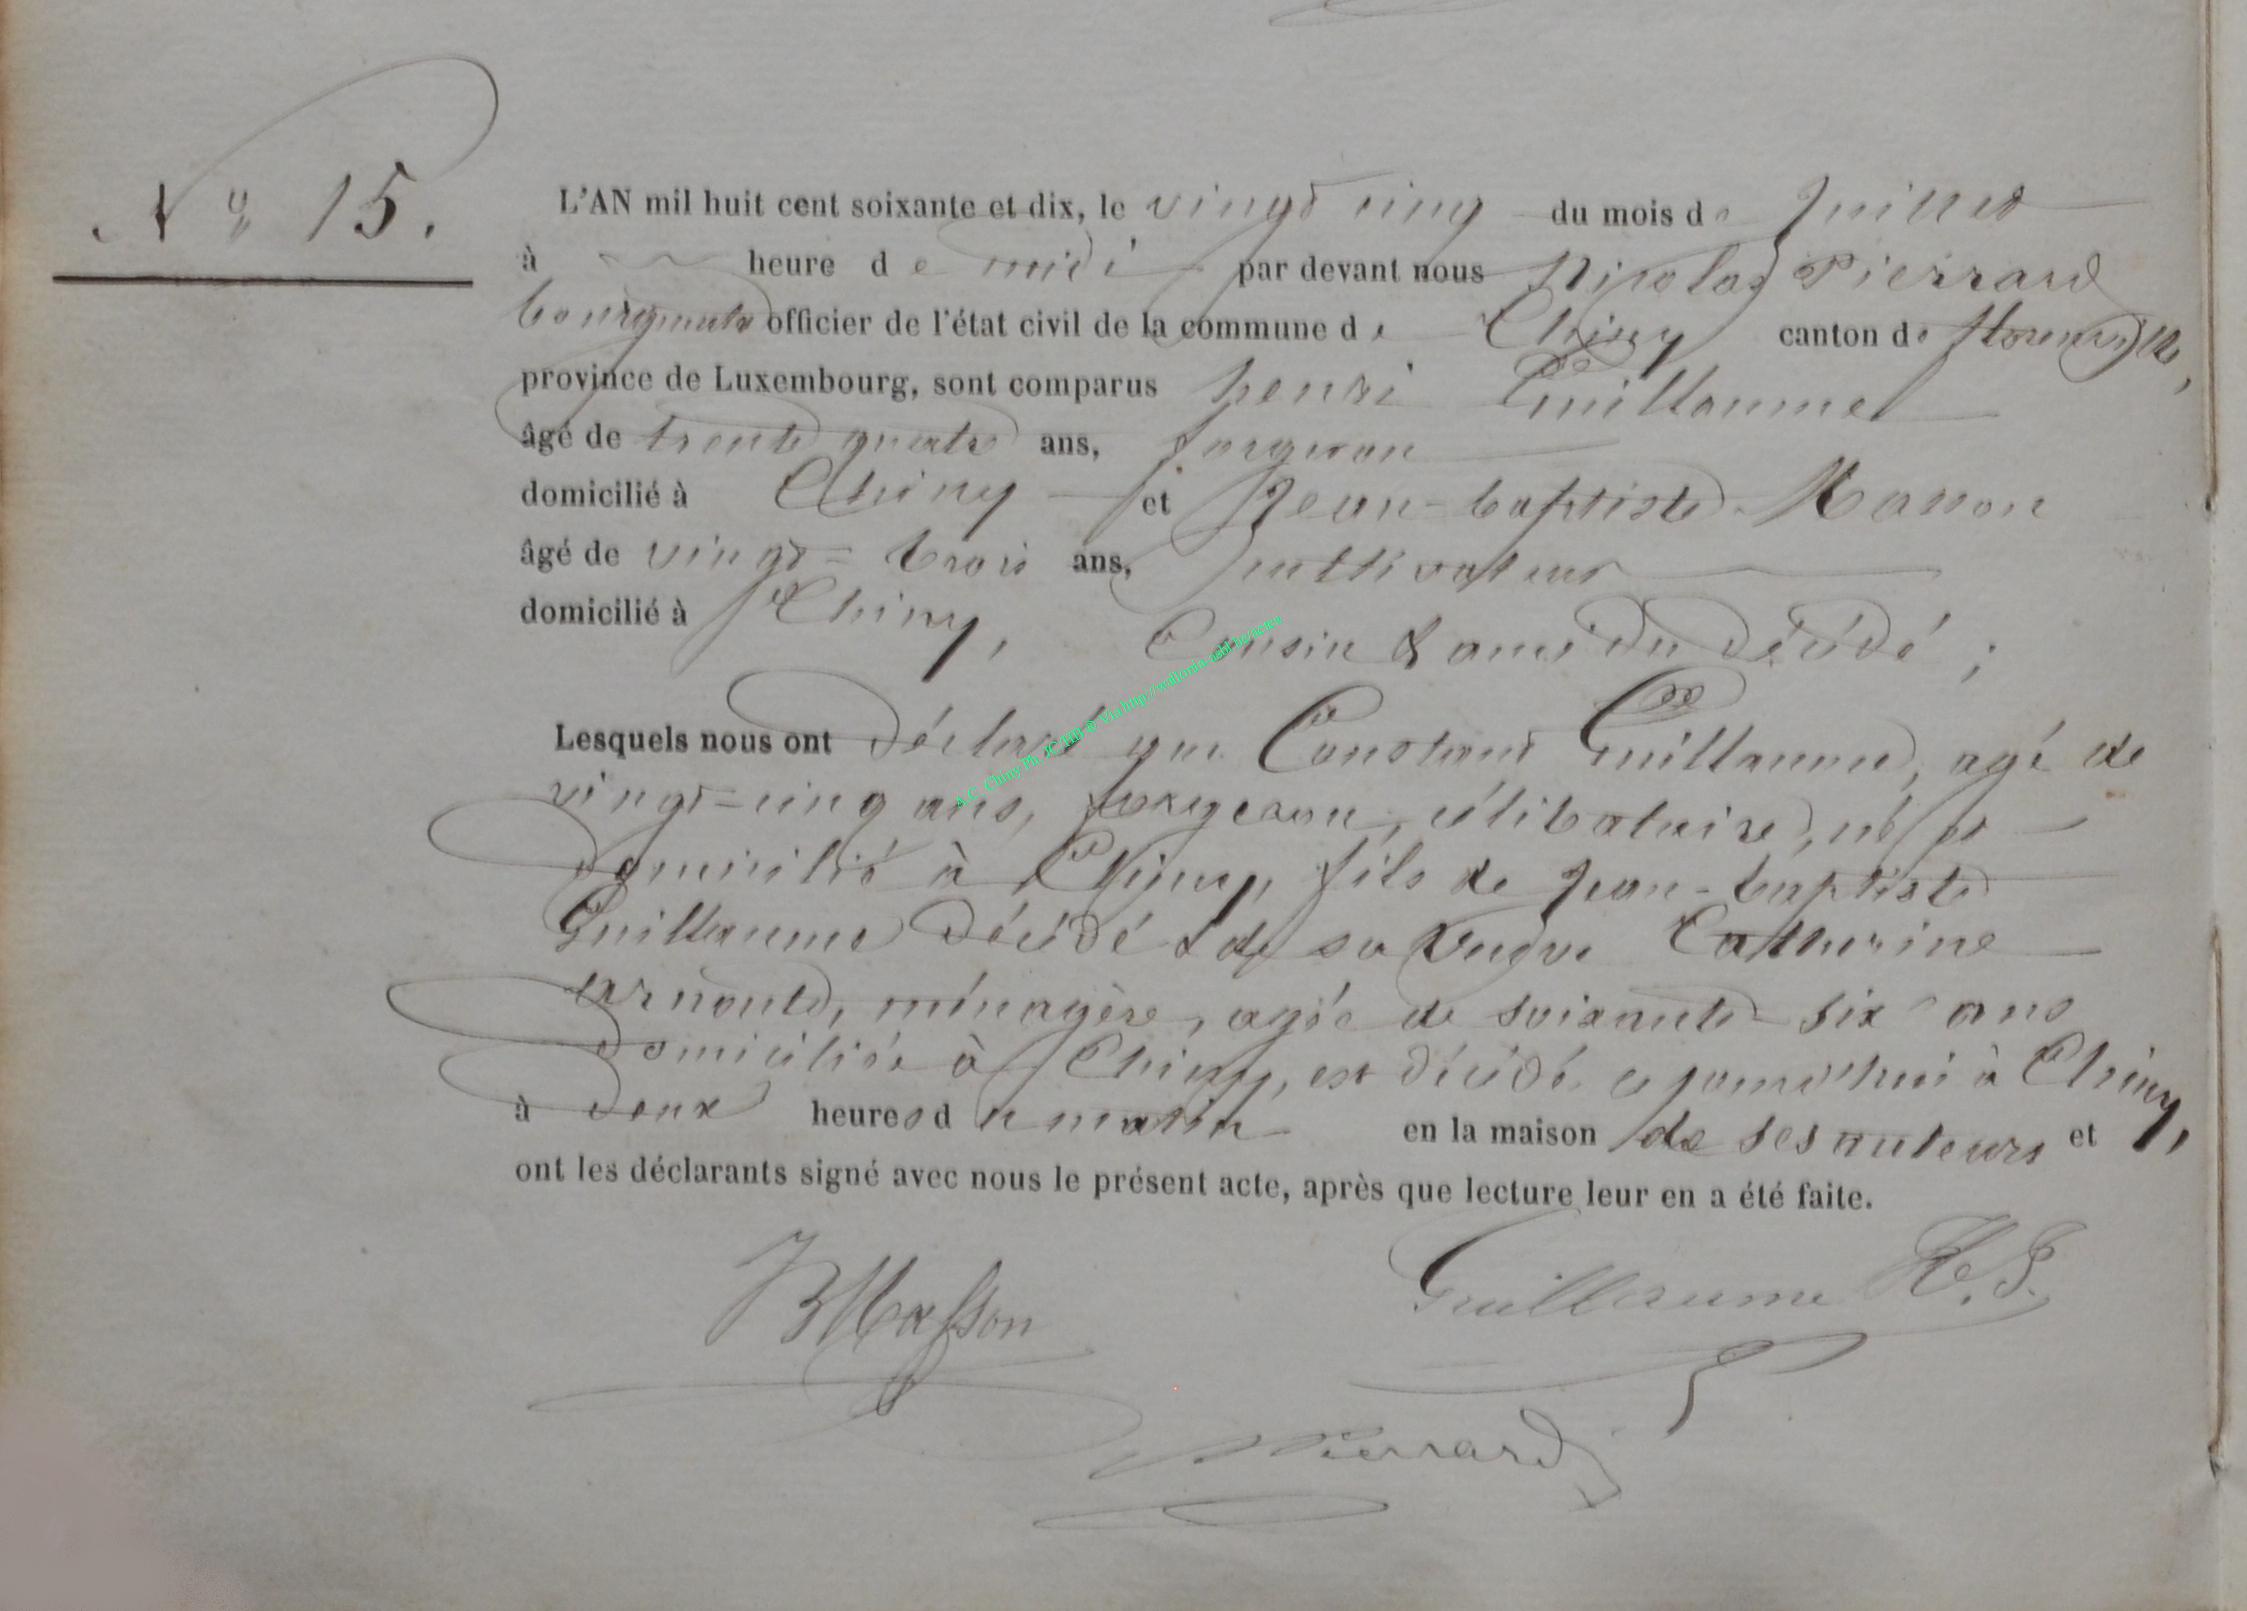 N° 15.
L'AN mil huit cent soixante et dix, le vingt cinq du mois de Juillet
à heure de midi par devant nous Nicolas Pierrard
bourgmestre officier de l'état civil de la commune de Chiny canton de florenville,
province de Luxembourg, sont comparus henri Guillaume
âgé de trente quatre ans, forgeron
domicilié à Chiny et Jean-baptiste Masson
âgé de vingt=trois ans, cultivateur
domicilié à Chiny, Cousin & ami du décédé ;
Lesquels nous ont déclaré que Constant Guillaume, agé de
vingt=cinq ans, forgeron, célibataire, né et
domicilié à Chiny, fils de Jean-baptiste
Guillaume décédé & de sa veuve Catherine
arnould, ménagère, agée de soixante-six ans
domiciliée à Chiny, est décédé ce jourd'hui à Chiny,
à deux heures du matin en la maison de ses auteurs et
ont les déclarants signé avec nous le présent acte, après que lecture leur en a été faite.
JBMasson
Guillaume H.J.
Pierrard
A.C. Chiny Ph. JC.HB @ Via http://wallonia-asbl.be/actes